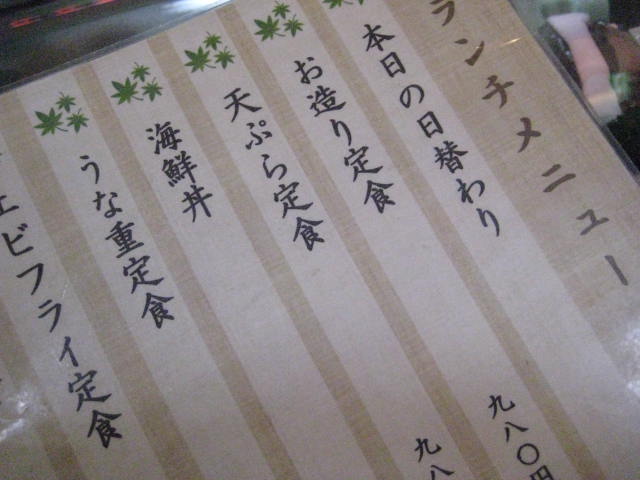 ランチメニュー
本日の日替わり 九八〇円
お造り定食 九八
天ぷら定食
海鮮丼
うな重定食
エビフライ定食